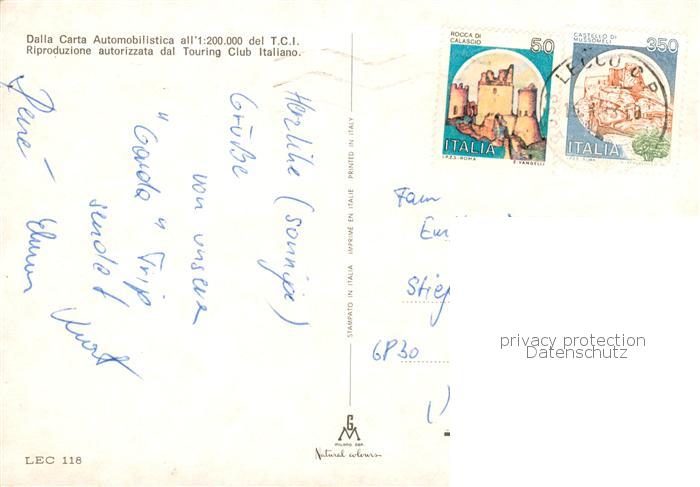 Dalla Carta Automobilistica all'1:200.000 del T.C.I.
Riproduzione autorizzata dal Touring Club Italiano.
ROCCA DI
CALASCIO
50
ITALIA
I.P.Z.S.-ROMA
E. VANGELLI
CASTELLO DI
MUSSOMELI
350
ITALIA
I.P.Z.S.-ROMA
LECCO C.P.
Herzlihe (sonnige)
Grüße
von unserem
"Garda" Trip
sendet
Kurt
René
STAMPATO IN ITALIA IMPRIMÉ EN ITALIE PRINTED IN ITALY
Fam
6830
privacy protection
Datenschutz
GM
MILANO DEP.
Natural colours
LEC 118